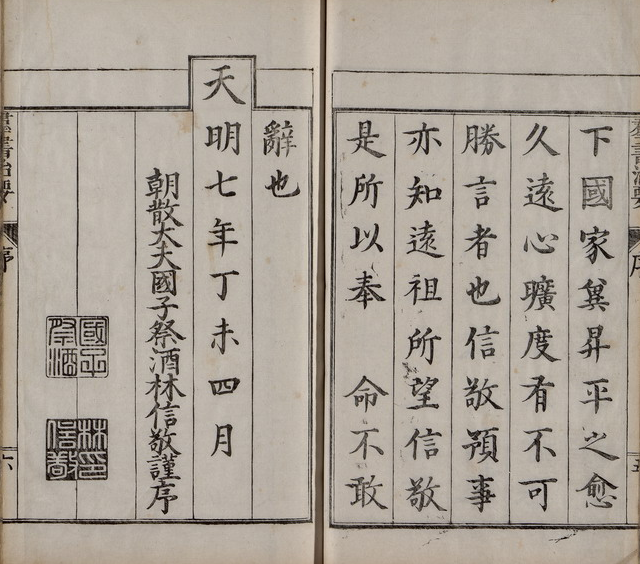 下國家冀昇平之愈
久遠心曠度有不可
勝言者也信敬預事
亦知遠祖所望信敬
是所以奉　命不敢
辭也
天明七年丁未四月
朝散大夫國子祭酒林信敬謹序
國子祭酒
林印信敬
群書治要
序
六